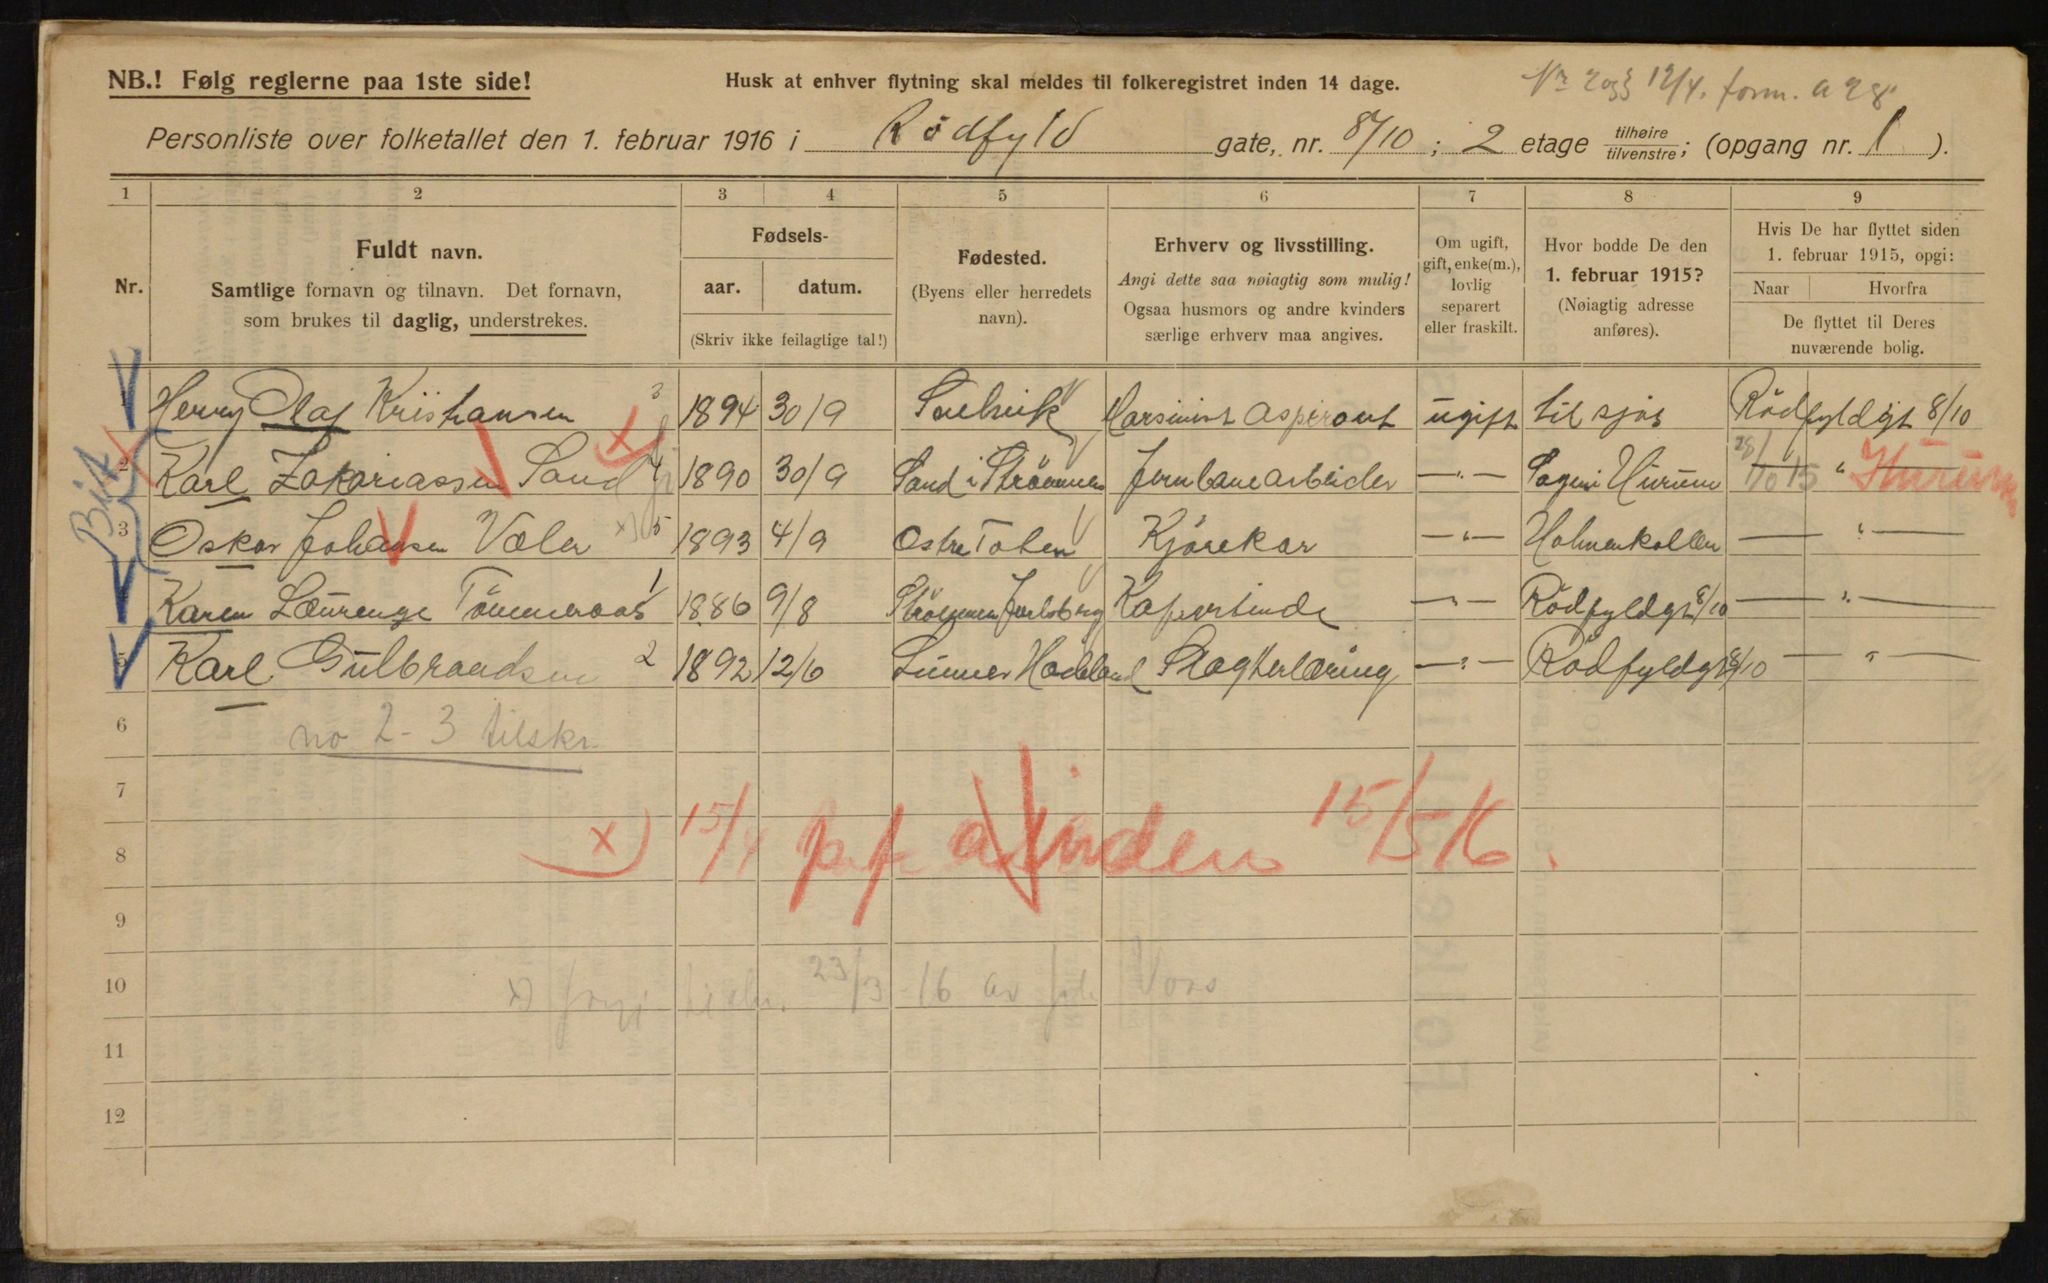 NB.! Følg reglerne paa 1ste side!
Husk at enhver flytning skal meldes til folkeregistret inden 14 dage.
Nr 2 og 3 12/4. form. a 28.
Personliste over folketallet den 1. februar 1916 i Rødfyld gate, nr. 8/10 ; 2 etage tilhøire/tilvenstre; (opgang nr. 1 ).
1 2 3 4 5 6 7 8 9
Nr.
Fuldt navn.
Samtlige fornavn og tilnavn. Det fornavn,
som brukes til daglig, understrekes.
Fødsels-
aar. datum.
(Skriv ikke feilagtige tal!)
Fødested.
(Byens eller herredets
navn).
Erhverv og livsstilling.
Angi dette saa nøiagtig som mulig!
Ogsaa husmors og andre kvinders
særlige erhverv maa angives.
Om ugift,
gift, enke(m.),
lovlig
separert
eller fraskilt.
Hvor bodde De den
1. februar 1915?
(Nøiagtig adresse
anføres).
Hvis De har flyttet siden
1. februar 1915, opgi:
Naar Hvorfra
De flyttet til Deres
nuværende bolig.
1 Henry Olaf Kristiansen 3 1894 30/9 Maskinist Aspirant ugift til sjøs Rödfyldgt 8/10
2 Karl Zakariassen Sand 4 1890 30/9 Sand i Strömmen Jernbanearbeider —"— Hurum 28/10 15 " Hurum
3 Oskar Johansen Valer x) 5 1893 4/9 Östre Toten Kjörekar —"— Holmenkollen — " —
Karen Laurenze Tömmeraas 1 1886 9/8 Strömmen Jarlsberg —"— Rödfyldgt 8/10 — " —
5 Karl Gulbrandsen 2 1892 12/6 Lunner Hadeland Slagterlæring —"— Rödfyldgt 8/10 — " —
6 no 2-3 tilskr.
7
8 x) 15/4 p.f. a inden 15/5 16.
9
10 23/3-16 av
11
12